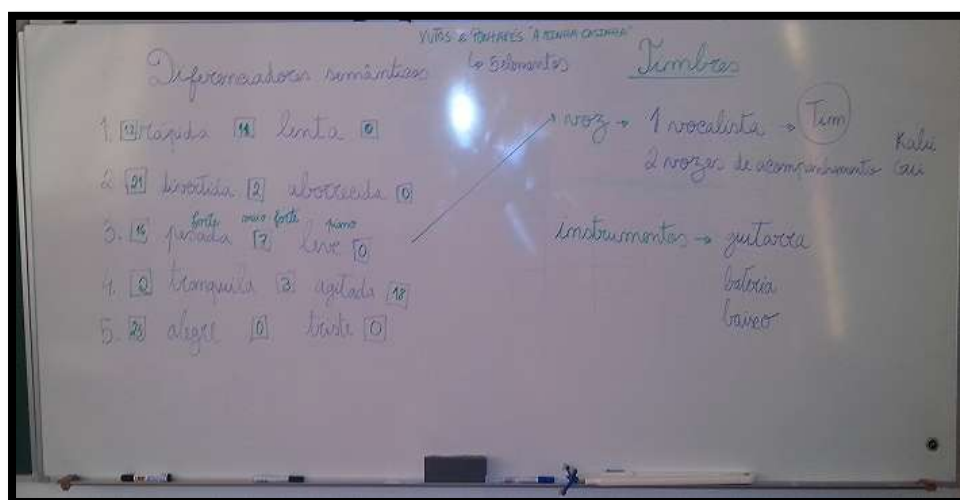 XUTOS & PONTAPÉS "A MINHA CASINHA"
↳ 5 elementos
Diferenciadores semânticos
1. 12 rápida 11 lenta 0
2. 21 divertida 2 aborrecida 0
forte meio-forte piano
3. 16 pesada 7 leve 0
4. 2 tranquila 3 agitada 18
5. 23 alegre 0 triste 0
Timbres
voz → 1 vocalista → Tim
2 vozes de acompanhamento Kalú
Gui
instrumentos → guitarra
bateria
baixo